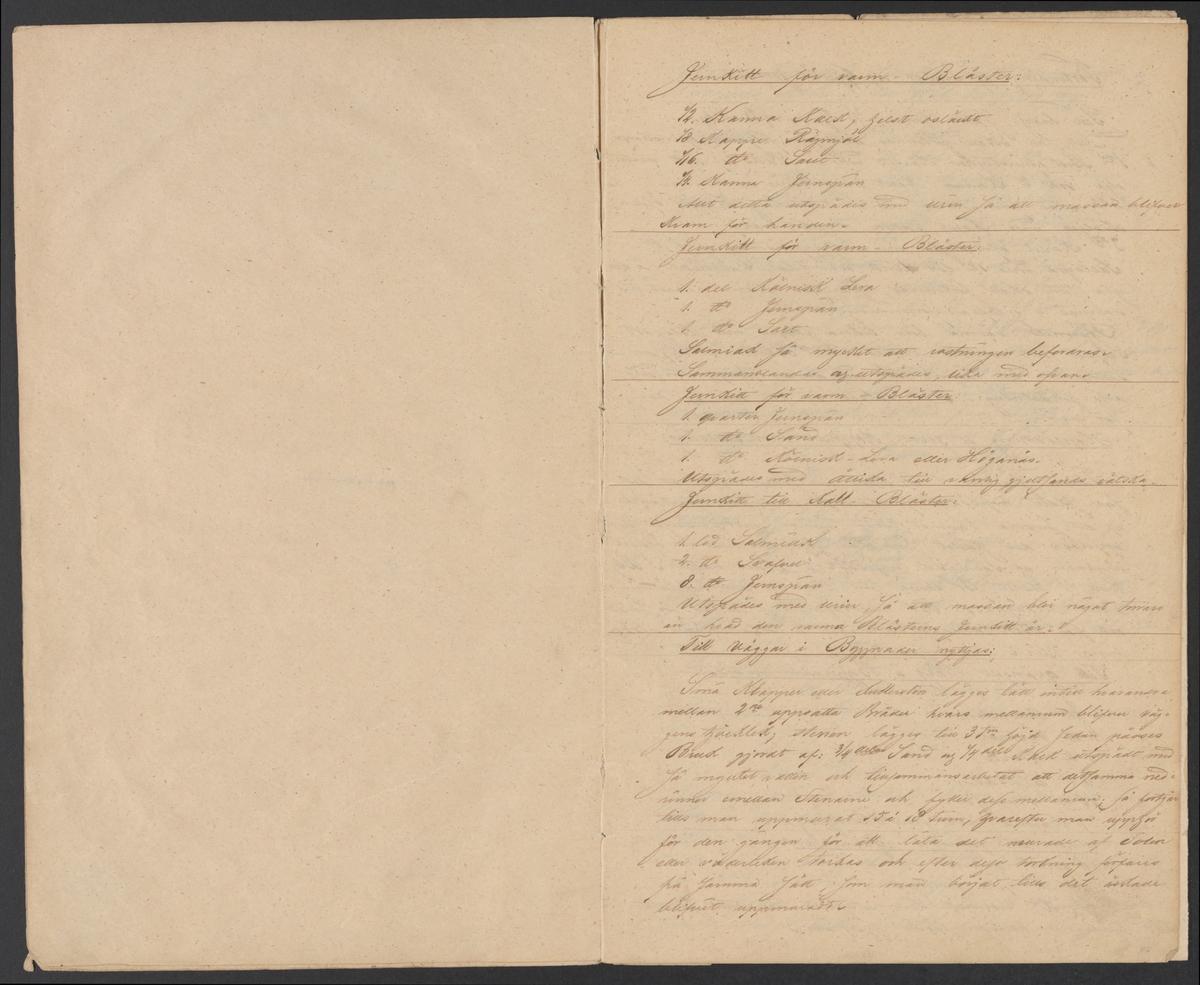 Jernkitt för varm- Bläster:
1/2. Kanna Kalk, helst osläckt
1/8 Kappe Rågmjöl
1/16. do Salt
1/4. Kanna Jernspån
Allt detta utspädes med urin så att massan blifver
kram för handen.
Jernkitt för varm- Bläster:
1. del Kölnisk Lera
1. do Jernspån
1. do Salt
Salmiak så mycket att rostningen befordras.
Sammanblandas och utspädes lika med ofvan.
Jernkitt för varm- Bläster.
1. quarter Jernspån
1. do Sand
1. do Kölnisk-Lera eller Höganäs.
Utspädes med Ättika till vanlig vätska.
Jernkitt till Kall- Bläster:
1. lod Salmiak
2. do Svafvel
8. do Jernspån
Utspädes med urin, så att massan blir något torrare
än hvad den varma Blästerns Jernkitt är:
Till Väggar i Byggnader nyttjas:
Små Klapper eller Kullersten lägges tätt intill hvarandra
mellan 2ne uppsatta Bräder hvars mellanrum blifver väg-
gens tjocklek, stenen lägges till 3 Tm höjd sedan påöses
Bruk gjordt af: 3/4 delar Sand och 1/4 del Kalk utspädt med
så mycket vatten och tillsammansarbetat att detsamma ned-
rinner emellan Stenarne och fyller dess mellanrum; så fortfar
tills man uppmurat 15 à 18 tum, hvarefter man upphör
för den gången för att låta det murade af Solen
eller väderleken torkas och efter dess torkning förfares
på samma sätt, som man börjat tills det åstadde
blifvit uppmuradt.